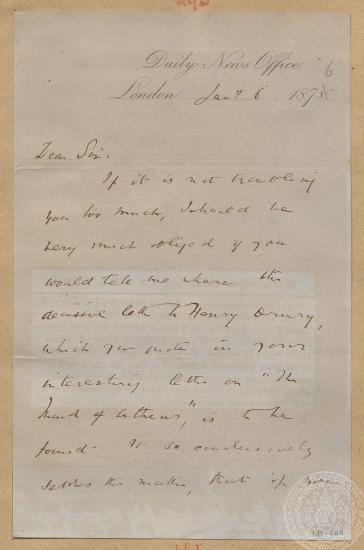 Daily News Office,
London Jany 6 1875 6
Dear Sir:
If it is not troubling
you too much, I should be
very much obliged if you
would tell me where the
decisive letter to Henry Drury,
which you quote in your
interesting letter on "The
Maid of Athens," is to be
found. It so conclusively
settles the matter, that if